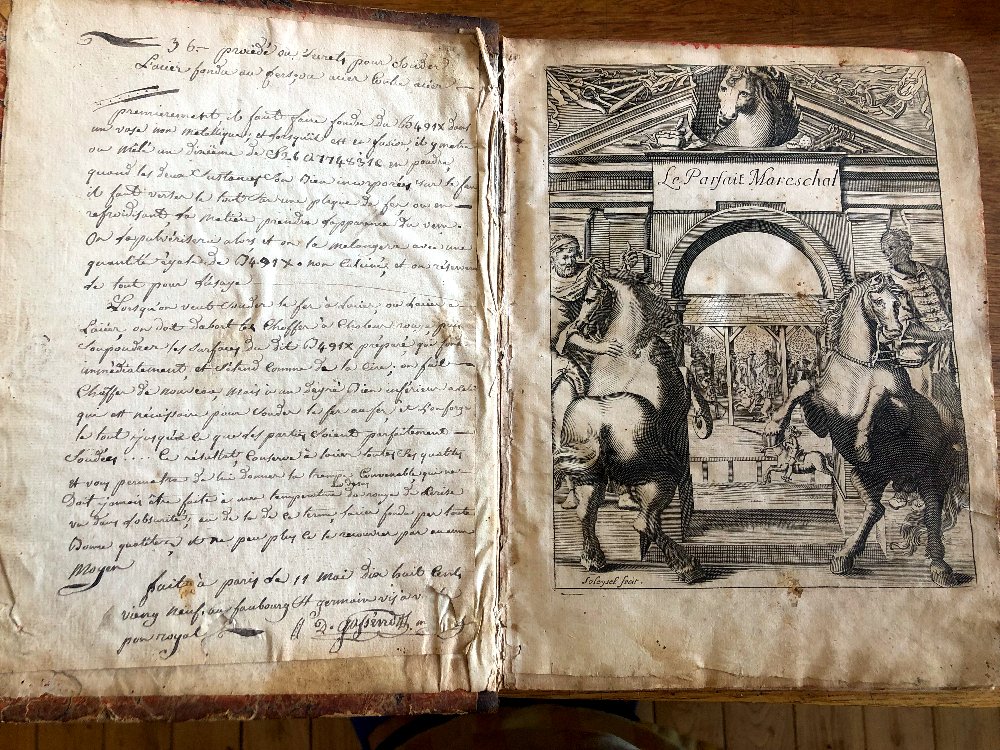 36 — procédé ou secrets pour souder
L'acier fondu au fer ou acier acier —
premierement il faut faire fondre du B491X dans
un vase non metallique, et lorsqu'il est en fusion, il y mettre
ou mêlé un dixième de S26 en poudre,
quand les deux Substances bien incorporées sur le feu
il faut verser le tout sur une plaque de fer ou en —
refroidissant la matière prendra l'apparence du verre.
On la pulvérisera alors et on la melangera avec une
quantité égale de B491X non calciné et on réserve
le tout pour l'usage
Lorsqu'on veut souder le fer à l'acier, ou l'acier à
l'acier, on doit dabort les Choffer à Chaleur rouge puis
soupoudrer les surfaces du dit B491X préparé qui
immédiatement et s'étend comme de la Cire, on
Choffe de nouveau mais à un degré bien inférieur à celui
qui est nécéssaire pour souder le fer au fer et l'on forge
le tout jusqu'à ce que des parties soient parfaitement —
Soudées ... Le résultat, conserve à l'acier toutes ses qualités
et vous permettra de lui donner la trempe convenable qui ne
Doit jamais être faite à une température du rouge de Cerise
vu dans l'obscurité, au de la de ce terme l'acier fondu perd toute
Bonne qualité, et ne peu plus la recouvrer par aucun
Moyen
fait à paris le 11 Mai dix huit Cent
vieng neuf, au faubourg St germain vis a vis
pon royal
Le Parfait Mareschal
Soleysel fecit.